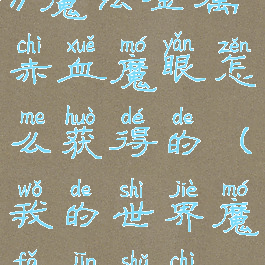 魔法金属
chì xuě mó yǎn zěn
赤血魔眼怎
me huò dé de
么获得的（
wǒ de shì jiè mó
我的世界魔
fǎ jīn shǔ chì